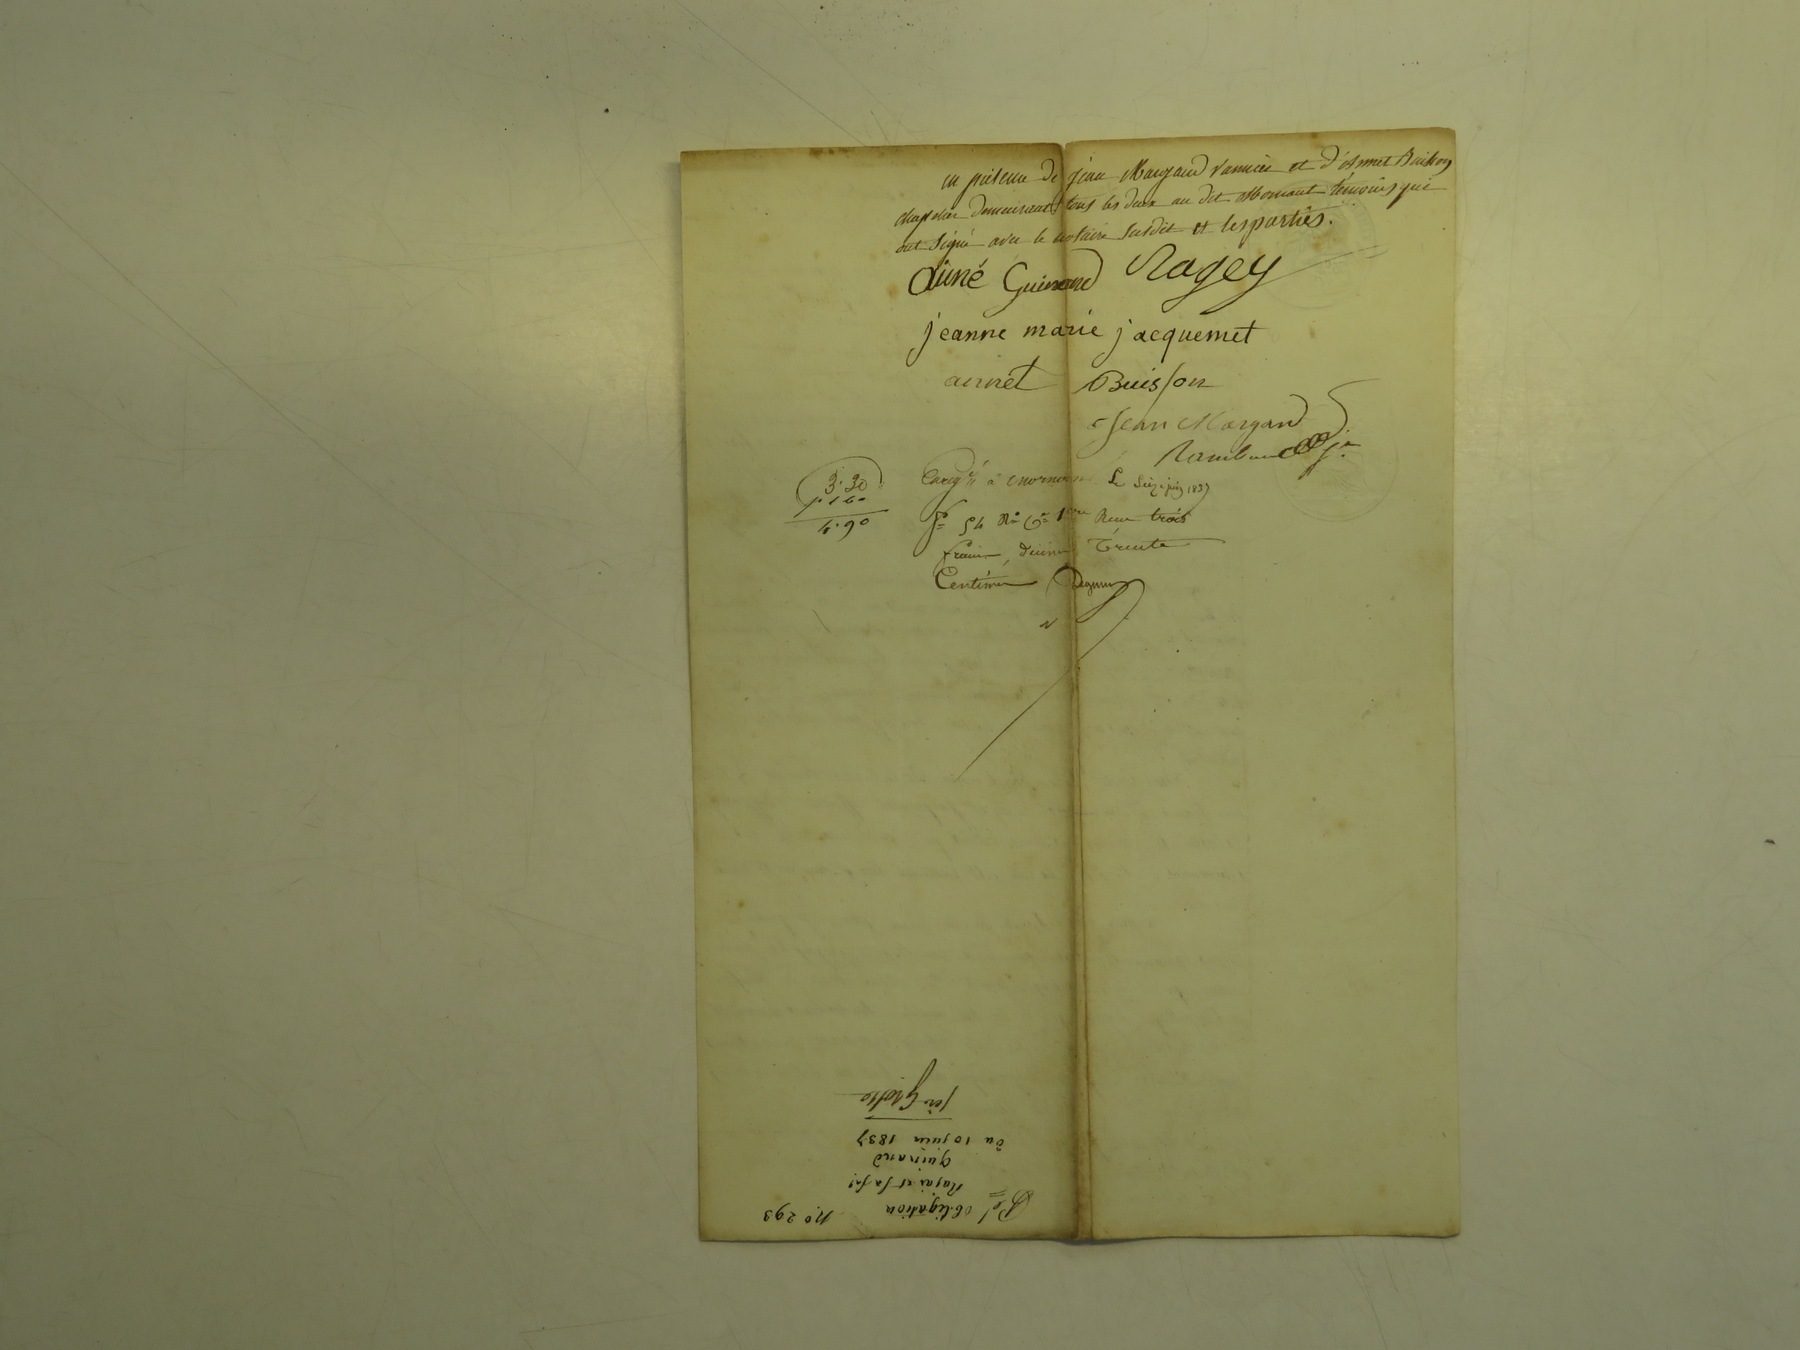 en présence de jean Margand vannier et d'Annet Buisson
chapelier demeurant tous les deux au dit Mornant témoins qui
ont signé avec le notaire susdit et les parties.
aimé Guinand Ragey
jeanne marie jacquemet
annet Buisson
Jean Margand
Enreg.é à Mornant Le Seize juin 1837
3.30
1.60
4.90
f.o 54 R.o C.e 1ere Reçu trois
francs décime Trente
Centimes
N.o 293
obligation
Guinand
du 10 juin 1837
1ere Grosse